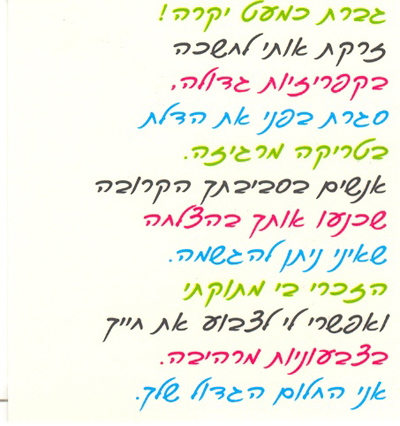 גברת כמעט יקרה!
זרקת אותי לחשכה
בקפריזיות גדולה,
סגרת בפני את הדלת
בטריקה מרגיזה.
אנשים בסביבתך הקרובה
שכנעו אותך בהצלחה
שאיני ניתן להגשמה.
הזכרי בי מתוקתי
ואפשרי לי לצבוע את חייך
בצבעוניות מרהיבה.
אני החלום הגדול שלך.